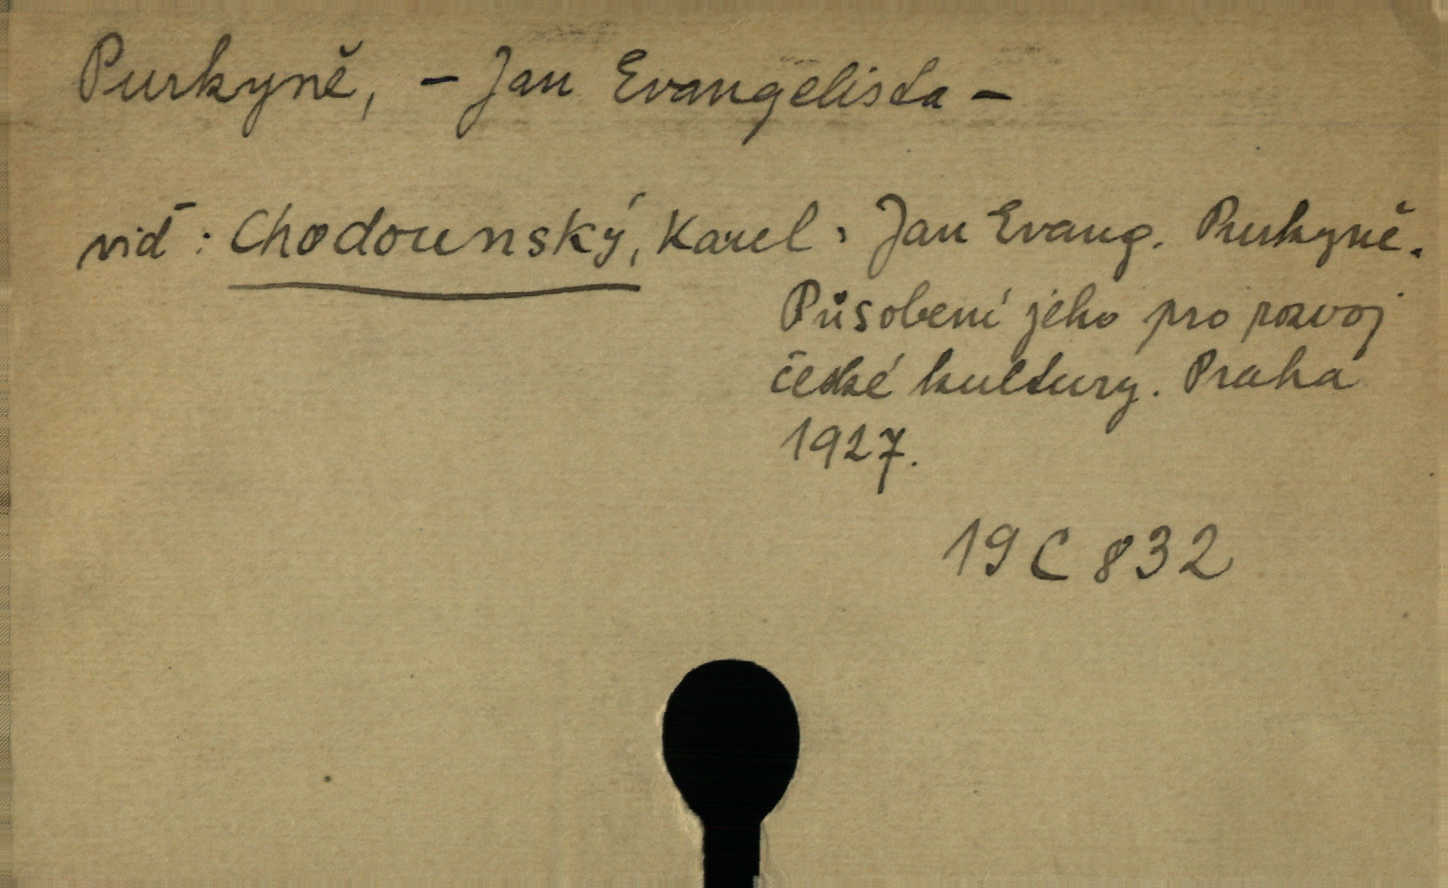 Purkyně, - Jan Evangelista -
viď: Chodounský, Karel: Jan Evang. Purkyně.
Působení jeho pro rozvoj
české kultury. Praha
1927.
19 C 832